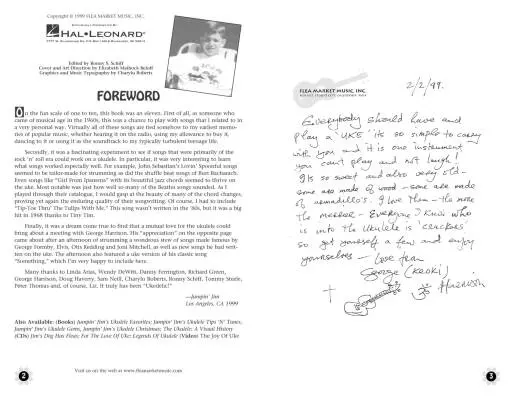 Copyright © 1999 FLEA MARKET MUSIC, INC.
HAL•LEONARD®
Edited by Ronny S. Schiff
Cover and Art Direction by Elizabeth Maihock Beloff
Graphics and Music Typography by Charylu Roberts
FOREWORD
On the fun scale of one to ten, this book was an eleven. First of all, as someone who
came of musical age in the 1960s, this was a chance to play with songs that I related to in
a very personal way. Virtually all of these songs are tied somehow to my earliest memo-
ries of popular music, whether hearing it on the radio, using my allowance to buy it,
dancing to it or using it as the soundtrack to my typically turbulent teenage life.
Secondly, it was a fascinating experiment to see if songs that were primarily of the
rock 'n' roll era could work on a ukulele. In particular, it was very interesting to learn
what songs worked especially well. For example, John Sebastian's Lovin' Spoonful songs
seemed to be tailor-made for strumming as did the shuffle beat songs of Burt Bacharach.
Even songs like "Girl From Ipanema" with its beautiful jazz chords seemed to thrive on
the uke. Most notable was just how well so many of the Beatles songs sounded. As I
played through their catalogue, I would gasp at the beauty of many of the chord changes,
proving yet again the enduring quality of their songwriting. Of course, I had to include
"Tip-Toe Thru' The Tulips With Me." This song wasn't written in the '60s, but it was a big
hit in 1968 thanks to Tiny Tim.
Finally, it was a dream come true to find that a mutual love for the ukulele could
bring about a meeting with George Harrison. His "appreciation" on the opposite page
came about after an afternoon of strumming a wondrous stew of songs made famous by
George Formby, Elvis, Otis Redding and Joni Mitchell, as well as new songs he had writ-
ten on the uke. The afternoon also featured a uke version of his classic song
"Something," which I'm very happy to include here.
Many thanks to Linda Arias, Wendy DeWitt, Danny Ferrington, Richard Green,
George Harrison, Doug Haverty, Sam Neill, Charylu Roberts, Ronny Schiff, Tommy Steele,
Peter Thomas and, of course, Liz. It truly has been "Ukedelic!"
—Jumpin' Jim
Los Angeles, CA 1999
Also Available: (Books) Jumpin' Jim's Ukulele Favorites; Jumpin' Jim's Ukulele Tips 'N' Tunes,
Jumpin' Jim's Ukulele Gems, Jumpin' Jim's Ukulele Christmas; The Ukulele: A Visual History
(CDs) Jim's Dog Has Fleas; For The Love Of Uke; Legends Of Ukulele (Video) The Joy Of Uke
Visit us on the web at www.fleamarketmusic.com
2
FLEA MARKET MUSIC, INC.
2/2/99.
Everybody should have and
play a 'UKE' its so simple to carry
with you and it is one instrument
you can't play and not laugh!
Its so sweet and also very old-
some are made of wood - some are made
of armadillo's. I love them - the more
the merrier - Everyone I know who
is into the ukulele is 'crackers'
so get yourself a few and enjoy
yourselves - Love from
George (Keoki)
Harrison
3